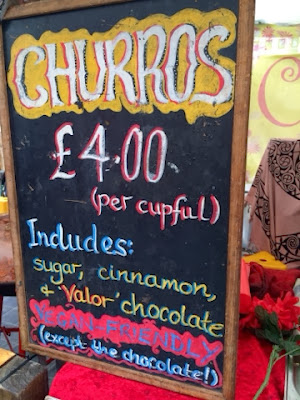 CHURROS
£4.00
(per cupful)
Includes:
sugar, cinnamon,
& 'Valor' chocolate
VEGAN-FRIENDLY
(except the chocolate!)